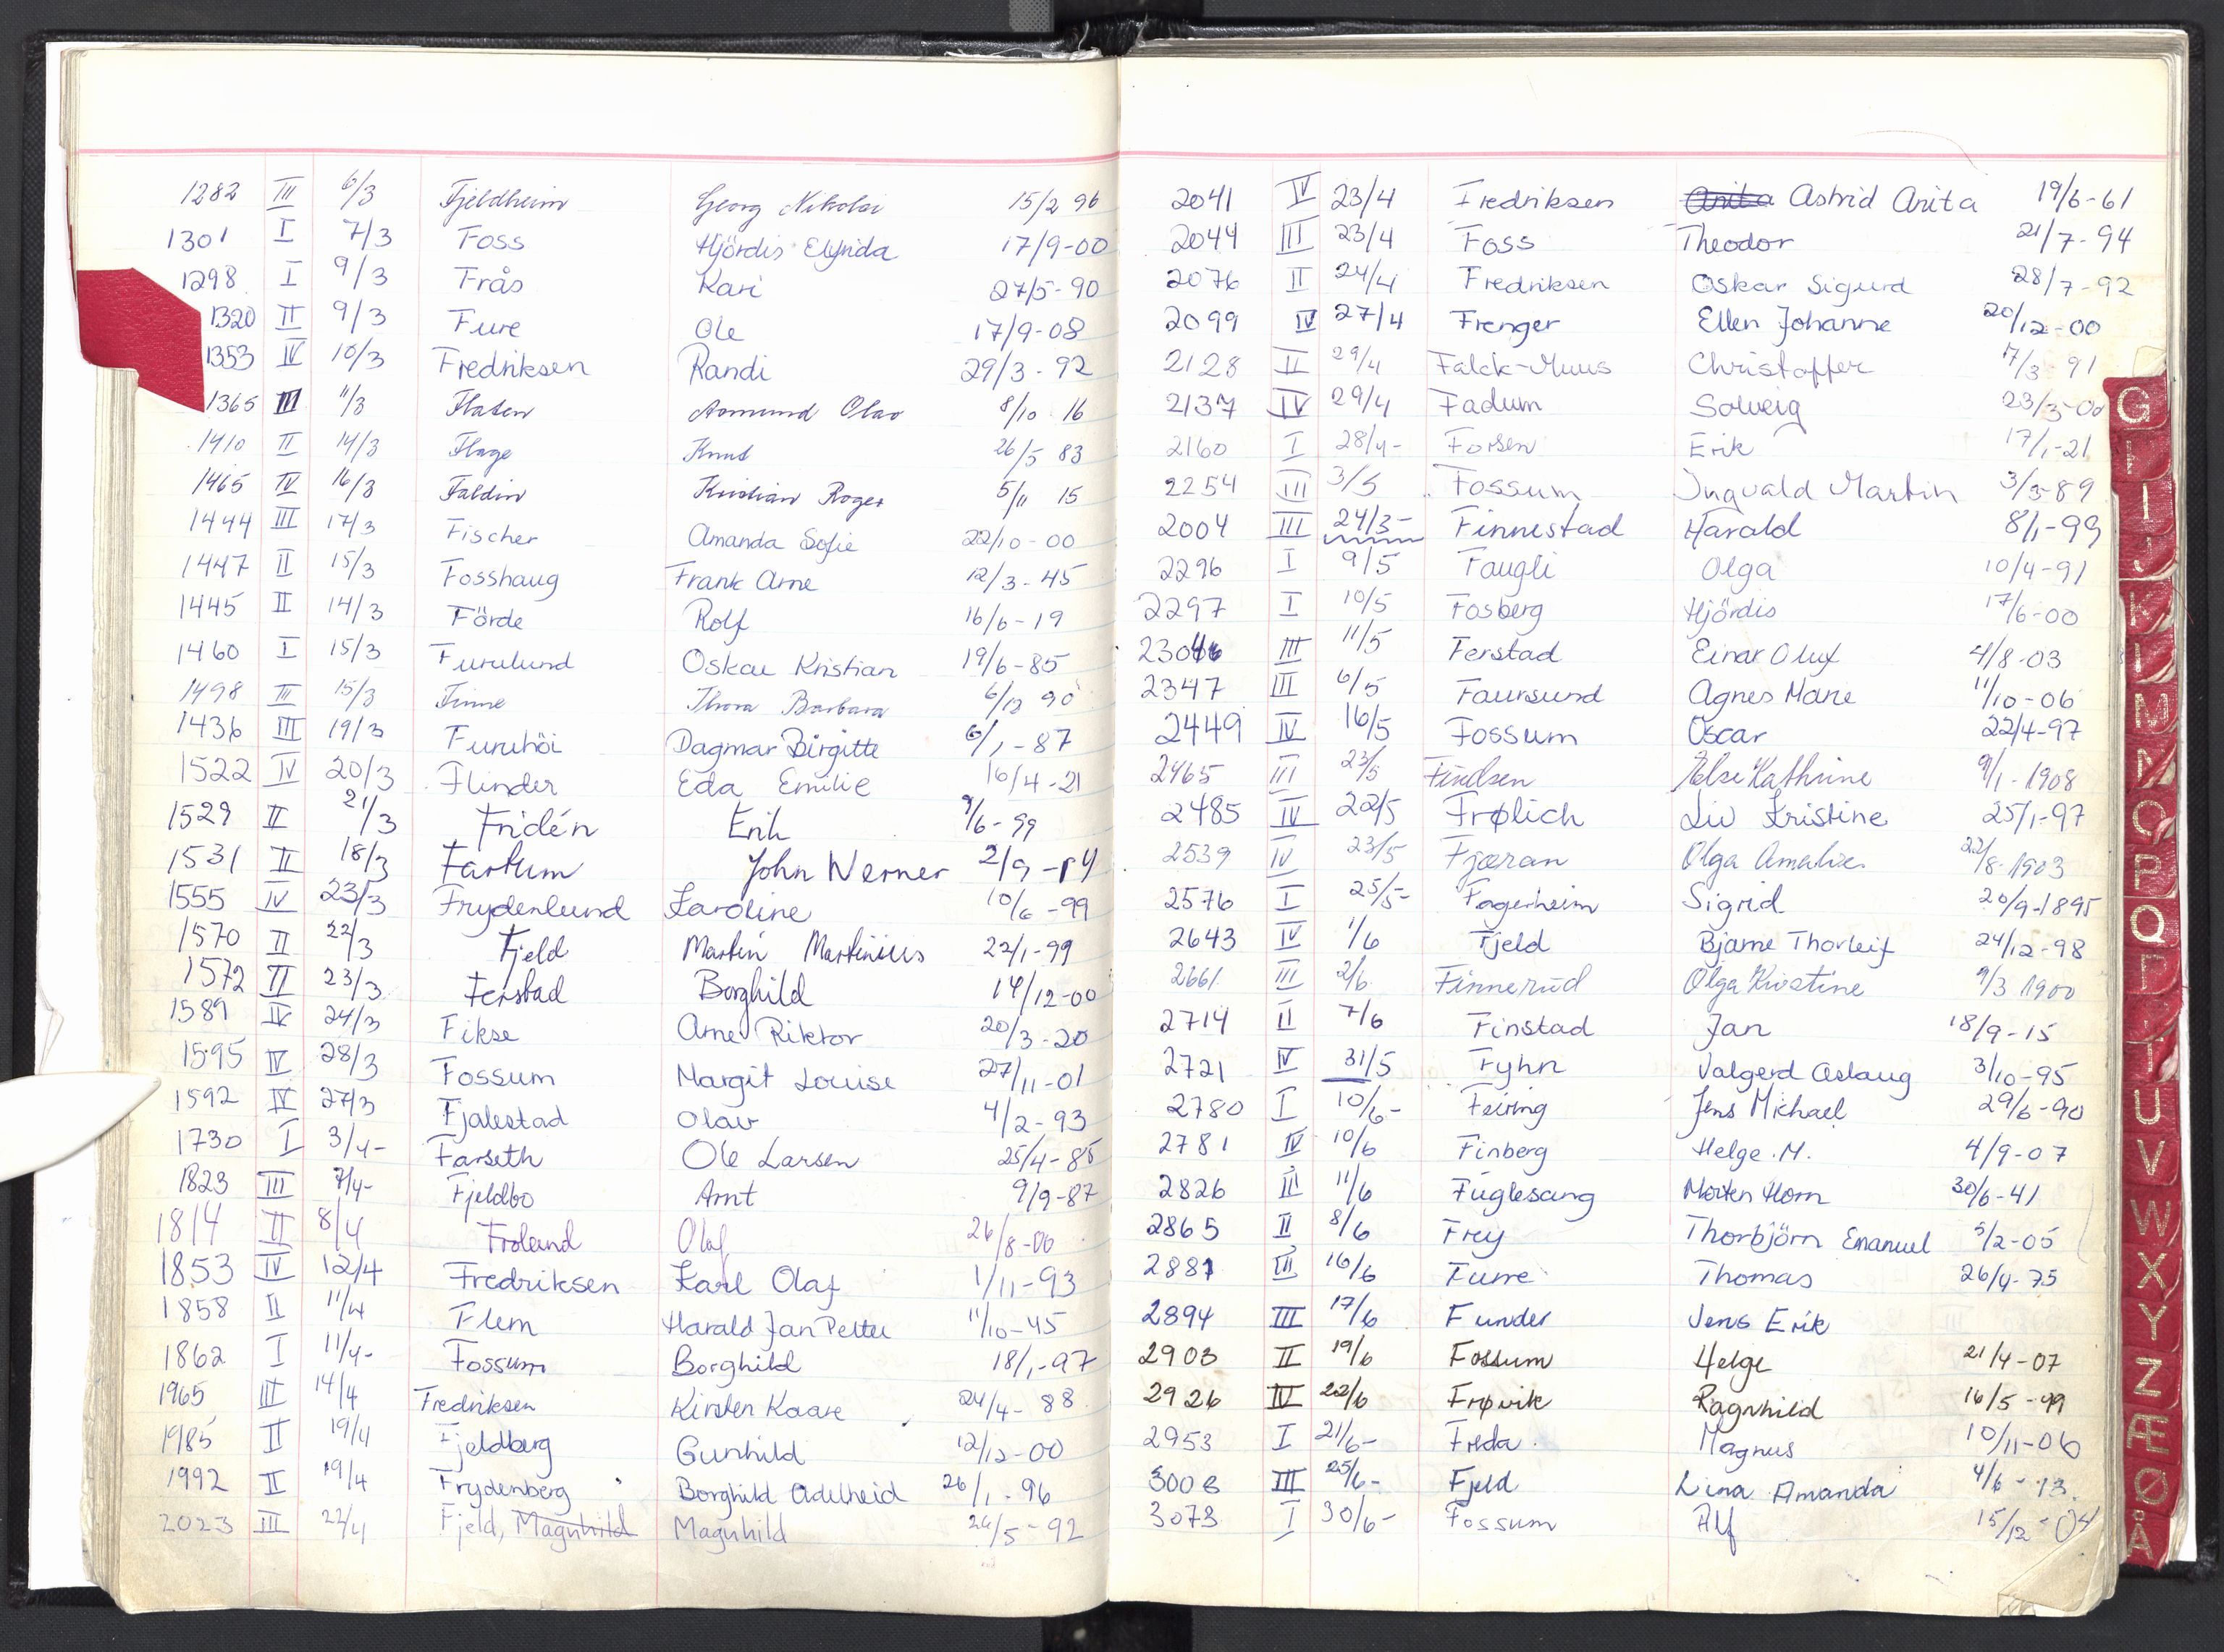 1282 III 6/3 Fjeldheim Georg Nikolai 15/2 96
1301 I 7/3 Foss Hjördis Elfrida 17/9-00
1298 I 9/3 Frås Kari 27/5-90
1320 II 9/3 Fure Ole 17/9-08
1353 IV 10/3 Fredriksen Randi 29/3-92
1365 III 11/3 Flaten Aamund Olav 8/10 16
1410 II 14/3 Flage Knud 26/5 83
1465 IV 16/3 Faldin Kristian Roger 5/11 15
1444 III 17/3 Fischer Amanda Sofie 22/10-00
1447 II 15/3 Fosshaug Frank Arne 12/3-45
1445 II 14/3 Förde Rolf 16/6-19
1460 I 15/3 Furulund Oskar Kristian 19/6-85
1498 III 15/3 Finne Thora Barbara 6/12 90
1436 III 19/3 Furuhöi Dagmar Birgitte 6/1-87
1522 IV 20/3 Flinder Eda Emilie 16/4-21
1529 II 21/3 Fridén Erik 9/6-99
1531 II 18/3 Fartum John Werner 2/9-14
1555 IV 23/3 Frydenlund Karoline 10/6-99
1570 II 22/3 Fjeld Martin Martinius 22/1-99
1572 II 23/3 Ferstad Borghild 14/12-00
1589 IV 24/3 Fikse Arne Riktor 20/3-20
1595 IV 28/3 Fossum Margit Louise 27/11-01
1592 IV 27/3 Fjalestad Olav 4/2-93
1730 I 3/4- Farseth Ole Larsen 25/4-85
1823 III 7/4- Fjeldbo Arnt 9/9-87
1814 II 8/4 Froland Olaf 26/8-06
1853 IV 12/4 Fredriksen Karl Olaf 1/11-93
1858 II 11/4 Flem Harald Jan Petter 11/10-45
1862 I 11/4- Fossum Borghild 18/1-97
1965 III 14/4 Fredriksen Kirsten Kaare 24/4-88
1985 II 19/4 Fjeldberg Gunhild 12/12-00
1992 II 19/4 Frydenberg Borghild Adelheid 26/1-96
2023 III 22/4 Fjeld, Magnhild Magnhild 26/5-92
2041 IV 23/4 Fredriksen Anita Astrid Anita 19/6-61
2044 III 23/4 Foss Theodor 21/7-94
2076 II 24/4 Fredriksen Oskar Sigurd 28/7-92
2099 IV 27/4 Frenger Ellen Johanne 20/12-00
2128 II 29/4 Falck-Muus Christoffer 7/3 91
2137 IV 29/4 Fadum Solveig 23/3-00
2160 I 28/4- Forsen Erik 17/1-21
2254 III 3/5 Fossum Ingvald Martin 3/3-89
2004 III 24/3- Finnestad Harald 8/1-99
2296 I 9/5 Faugli Olga 10/4-91
2297 I 10/5 Fosberg Hjördis 17/6-00
III 11/5 Ferstad Einar Oluf 4/8-03
2347 III 6/5 Faursund Agnes Marie 11/10-06
2449 IV 16/5 Fossum Oscar 22/4-97
2465 III 23/5 Findsen Else Kathrine 9/1-1908
2485 IV 22/5 Frølich Liv Kristine 25/1-97
2539 IV 23/5 Fjæran Olga Amalie 22/8-1903
2576 I 25/5- Fagerheim Sigrid 20/9-1895
2643 IV 1/6 Fjeld Bjarne Thorleif 24/12-98
2661 III 2/6 Finnerud Olga Kristine 9/3 1900
2714 II 7/6 Finstad Jan 18/9-15
2721 IV 31/5 Fyhn Valgerd Aslaug 3/10-95
2780 I 10/6- Feiring Jens Michael 29/6-90
2781 IV 10/6 Finberg Helge M. 4/9-07
2826 II 11/6 Fuglesang Morten Horn 30/6-41
2865 II 8/6 Frey Thorbjörn Emanuel 5/2-05
2881 III 16/6 Furre Thomas 26/4-75
2894 III 17/6 Funder Jens Erik
2903 II 19/6 Fossum Helge 21/4-07
2926 IV 22/6 Frøvik Ragnhild 16/5-99
2953 I 21/6- Freda Magnus 10/11-06
3008 III 25/6- Fjeld Lina Amanda 4/6-13
3073 I 30/6- Fossum Alf 15/12-04
G
H
I
J
K
L
M
N
O
P
Q
R
T
U
V
W
X
Y
Z
Æ
Ø
Å